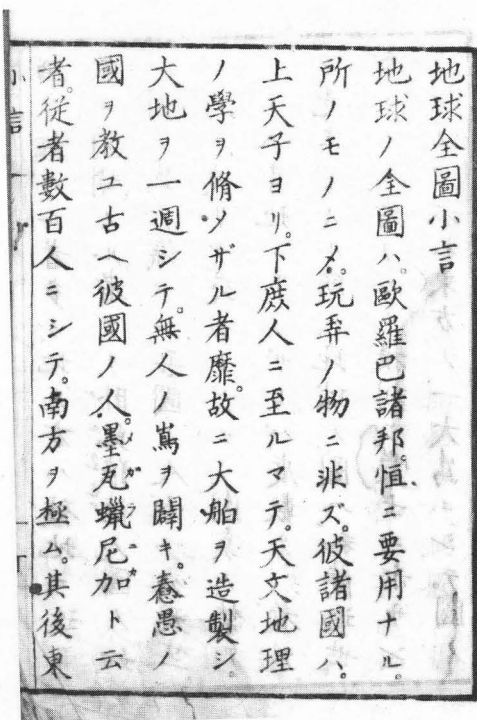 地球全圖小言
地球ノ全圖ハ。歐羅巴諸邦。恒ニ要用ナル。
所ノモノニ〆。玩弄ノ物ニ非ズ。彼諸國ハ。
上天子ヨリ。下庶人ニ至ルマテ。天文地理
ノ學ヲ脩メザル者靡。故ニ大舶ヲ造製シ。
大地ヲ一週シテ。無人ノ嶌ヲ闢キ。惷愚ノ
國ヲ教ユ古ヘ彼國ノ人。墨瓦蠟尼加ト云
者。從者數百人ニシテ。南方ヲ極ム。其後東
小言